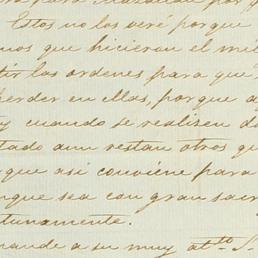 para Mazatlan por
Estos no los veré porque
mos que hicieran el mil
tir las ordenes para que
perder en ellas, porque a
y cuando se realisen d
tado aun restan otros qu
que asi conviene para
nque sea con gran sacr
tunamente.
mande a su muy at.to S.